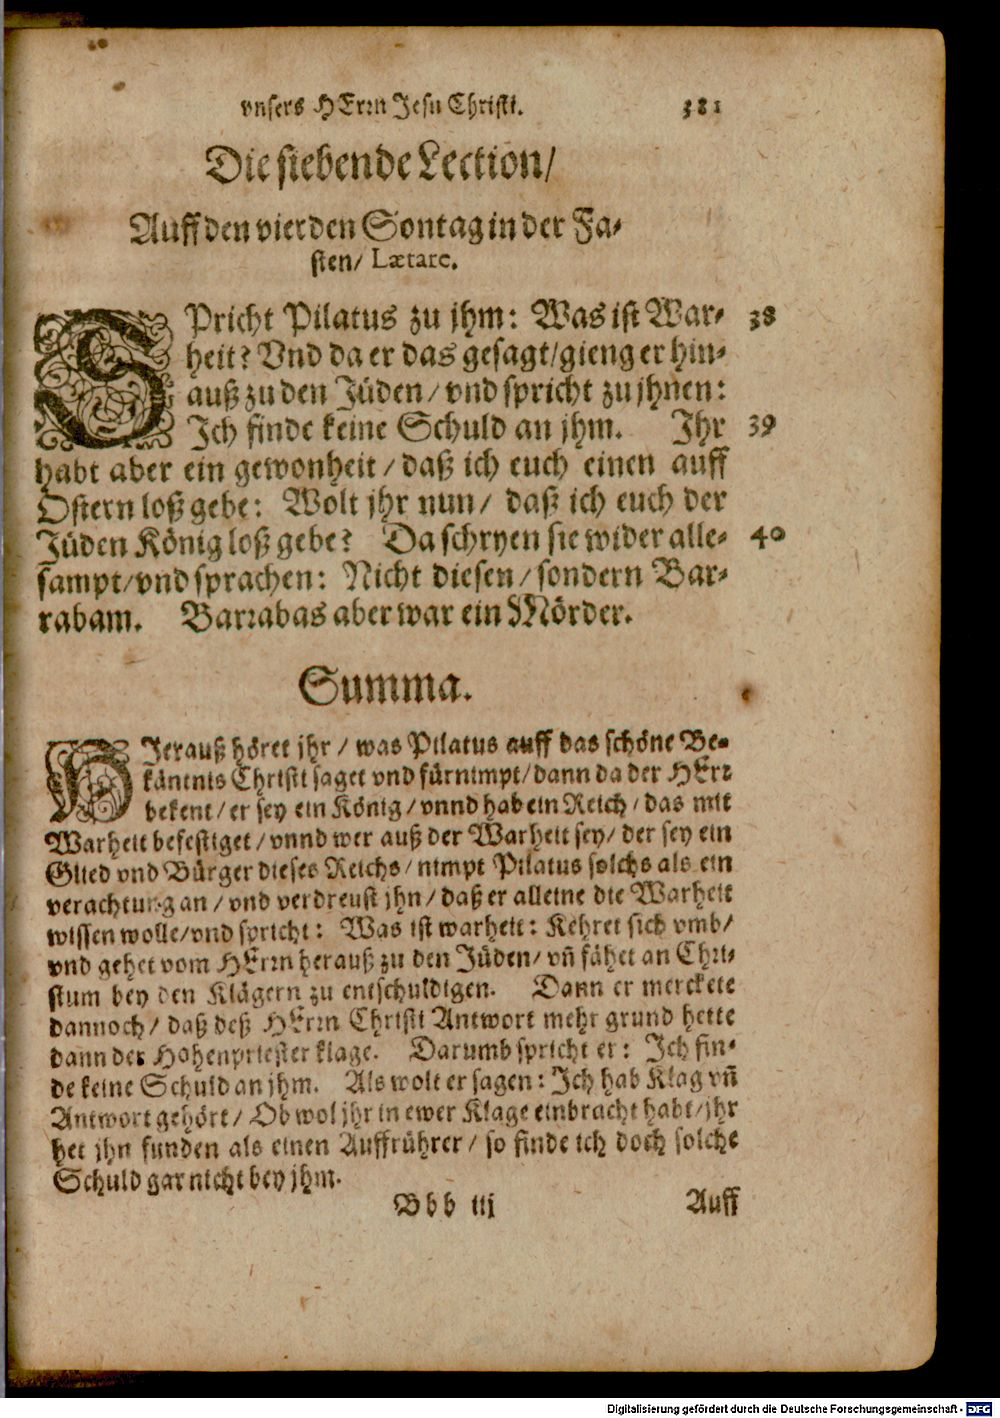 vnsers HErrn Jesu Christi. 381
Die siebende Lection/
Auff den vierden Sontag in der Fa-
sten/ Lætare.
SPricht Pilatus zu jhm: Was ist War- 38
heit? Vnd da er das gesagt/gieng er hin-
auß zu den Jüden/ vnd spricht zu jhnen:
Ich finde keine Schuld an jhm. Ihr 39
habt aber ein gewonheit/ daß ich euch einen auff
Ostern loß gebe: Wolt jhr nun/ daß ich euch der
Jüden König loß gebe? Da schryen sie wider alle- 40
sampt/vnd sprachen: Nicht diesen/sondern Bar-
rabam. Barrabas aber war ein Mörder.
Summa.
HIerauß höret jhr/ was Pilatus auff das schöne Be-
käntnis Christi saget vnd fürnimpt/dann da der HErr
bekent/ er sey ein König/ vnnd hab ein Reich/ das mit
Warheit befestiget/ vnnd wer auß der Warheit sey/ der sey ein
Glied vnd Bürger dieses Reichs/ nimpt Pilatus solchs als ein
verachtung an/ vnd verdreust jhn/ daß er alleine die Warheit
wissen wolle/vnd spricht: Was ist warheit: Kehret sich vmb/
vnd gehet vom HErrn herauß zu den Jüden/ vñ fähet an Chri-
stum bey den Klägern zu entschuldigen. Dann er merckete
dannoch/ daß deß HErrn Christi Antwort mehr grund hette
dann der Hohenpriester klage. Darumb spricht er: Ich fin-
de keine Schuld an jhm. Als wolt er sagen: Ich hab Klag vñ
Antwort gehört/ Ob wol jhr in ewer Klage einbracht habt/jhr
het jhn funden als einen Auffrührer/ so finde ich doch solche
Schuld gar nicht bey jhm.
Bbb iij Auff
Digitalisierung gefördert durch die Deutsche Forschungsgemeinschaft - DFG